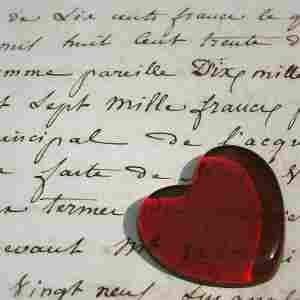 de Six cents francs le
mil huit Cent trente
somme pareille Dix mille
Sept Mille francs
principal de l'acqu
faite de
termes
devant Me
Vingt neuf